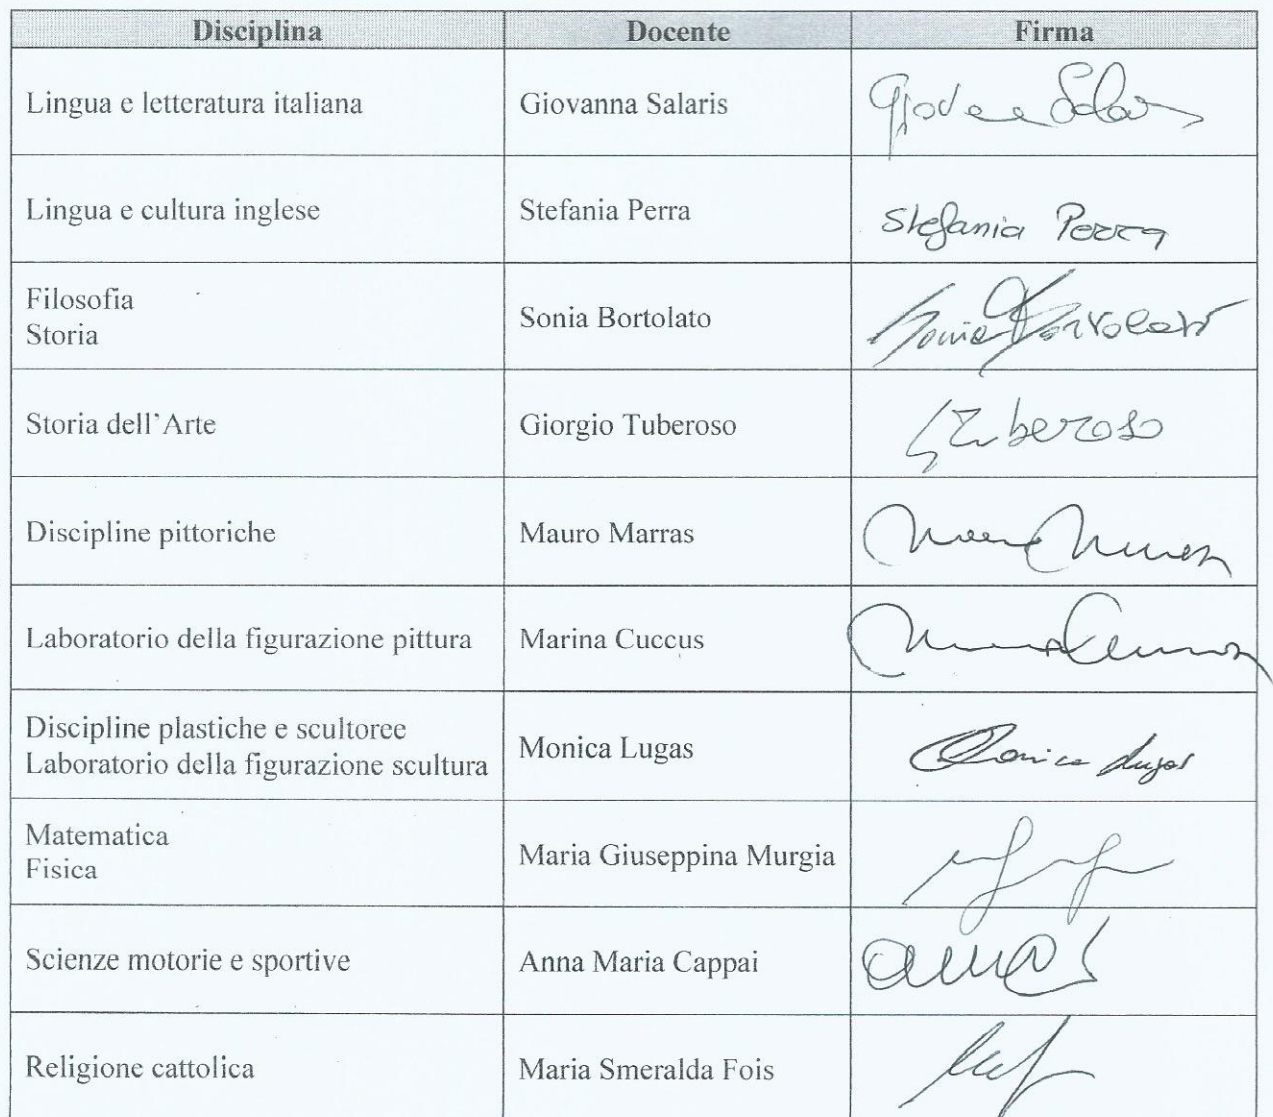 Disciplina Docente Firma
Lingua e letteratura italiana Giovanna Salaris
Lingua e cultura inglese Stefania Perra Stefania Perra
Filosofia
Storia
Sonia Bortolato Sonia Bortolato
Storia dell'Arte Giorgio Tuberoso GTuberoso
Discipline pittoriche Mauro Marras
Laboratorio della figurazione pittura Marina Cuccus
Discipline plastiche e scultoree
Laboratorio della figurazione scultura
Monica Lugas Monica Lugas
Matematica
Fisica
Maria Giuseppina Murgia
Scienze motorie e sportive Anna Maria Cappai
Religione cattolica Maria Smeralda Fois